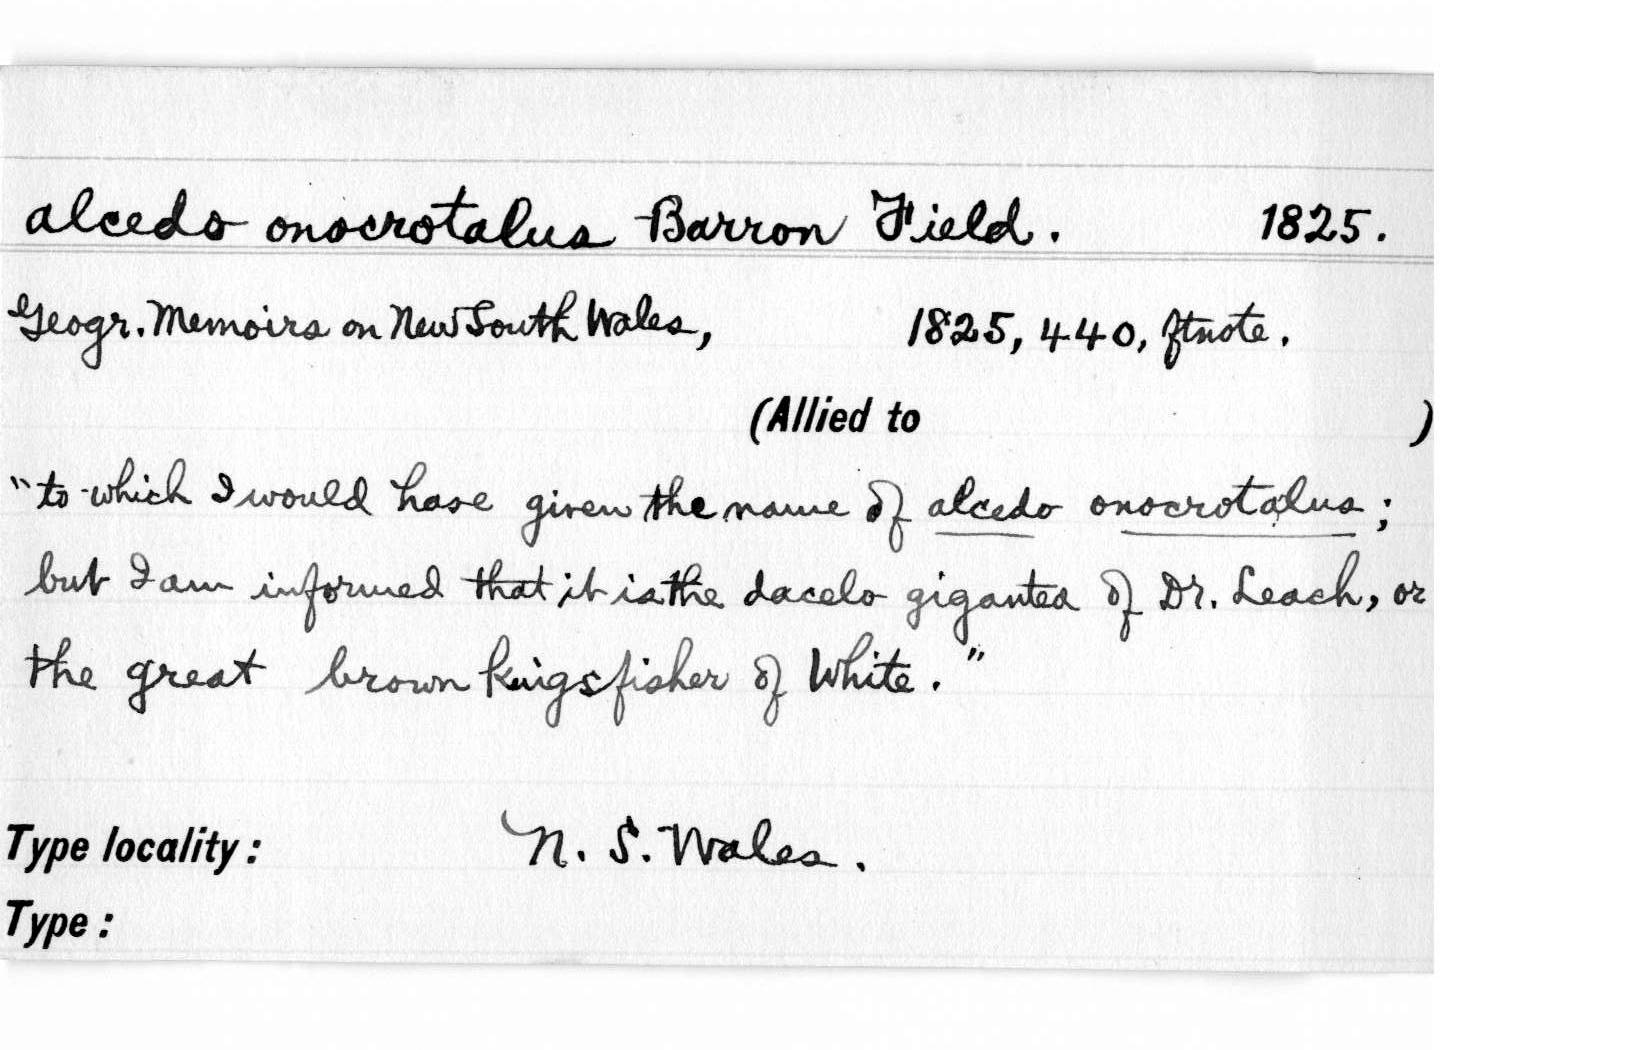 alcedo onocrotalus Barron Field. 1825.
Geogr. Memoirs on New South Wales, 1825, 440, ftnote.
(Allied to )
"to which I would have given the name of alcedo onocrotalus;
but I am informed that it is the dacelo gigantea of Dr. Leach, or
the great brown kingsfisher of White."
Type locality: N. S. Wales.
Type: